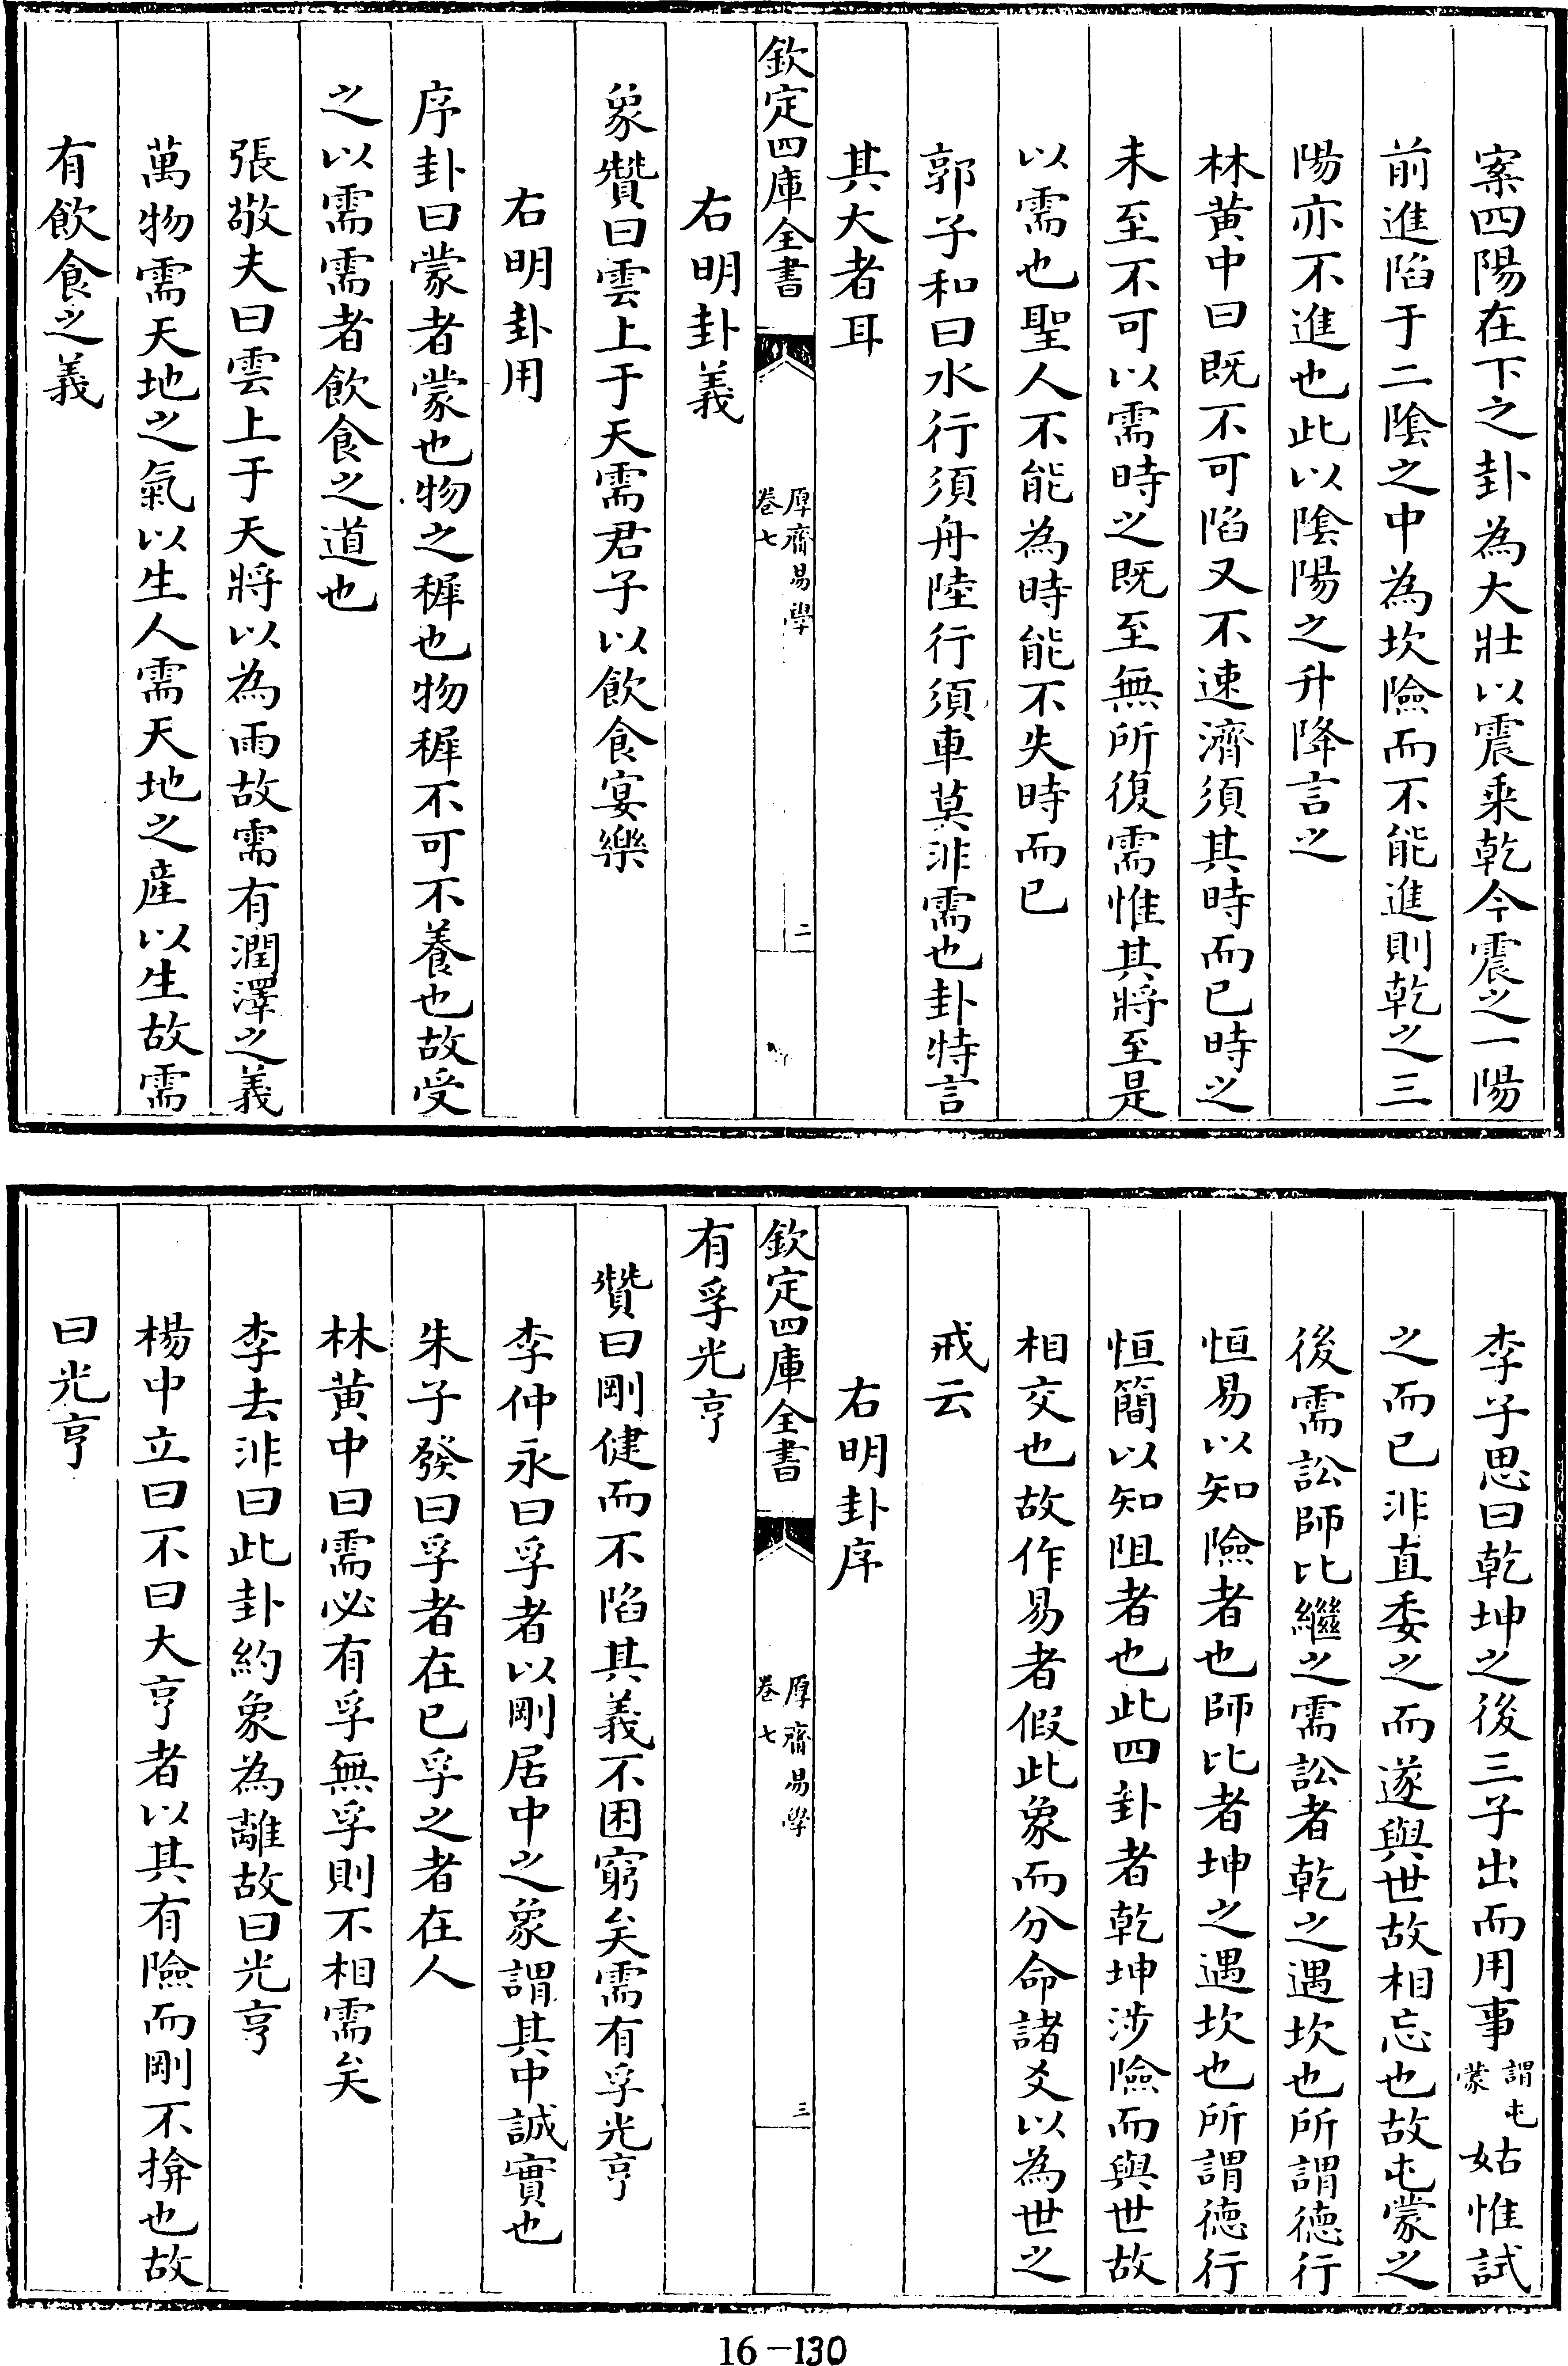 案四陽在下之卦為大壯以震乘乾今震之一陽
前進陷于二陰之中為坎險而不能進則乾之三
陽亦不進也此以陰陽之升降言之
林黄中曰既不可陷又不速濟須其時而已時之
未至不可以需時之既至無所復需惟其將至是
以需也聖人不能為時能不失時而已
郭子和曰水行須舟陸行須車莫非需也卦特言
其大者耳
欽定四庫全書
厚齋易學
卷七
二
右明卦義
象贊曰雲上于天需君子以飲食宴樂
右明卦用
序卦曰蒙者蒙也物之穉也物穉不可不養也故受
之以需需者飲食之道也
張敬夫曰雲上于天將以為雨故需有潤澤之義
萬物需天地之氣以生人需天地之産以生故需
有飲食之義
李子思曰乾坤之後三子出而用事謂屯蒙姑惟試
之而已非直委之而遂與世故相忘也故屯蒙之
後需訟師比繼之需訟者乾之遇坎也所謂德行
恒易以知險者也師比者坤之遇坎也所謂德行
恒簡以知阻者也此四卦者乾坤涉險而與世故
相交也故作易者假此象而分命諸爻以為世之
戒云
右明卦序
欽定四庫全書
厚齋易學
卷七
三
有孚光亨
贊曰剛健而不陷其義不困窮矣需有孚光亨
李仲永曰孚者以剛居中之象謂其中誠實也
朱子發曰孚者在已孚之者在人
林黄中曰需必有孚無孚則不相需矣
李去非曰此卦約象為離故曰光亨
楊中立曰不曰大亨者以其有險而剛不揜也故
曰光亨
16-130